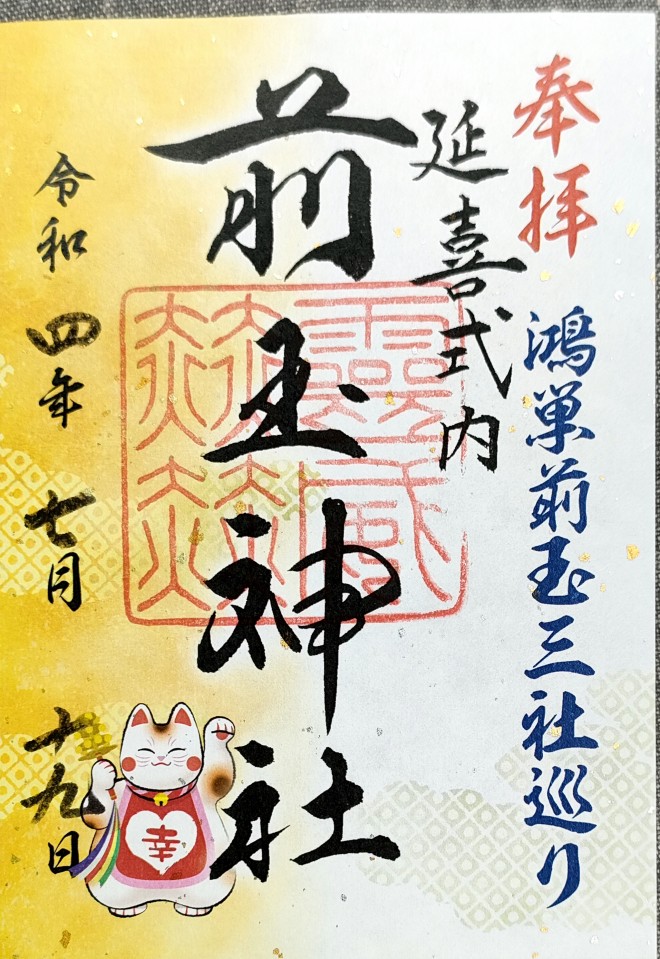 奉拝
鴻巣前玉三社巡り
延喜式内
前玉神社
令和四年七月十九日
幸